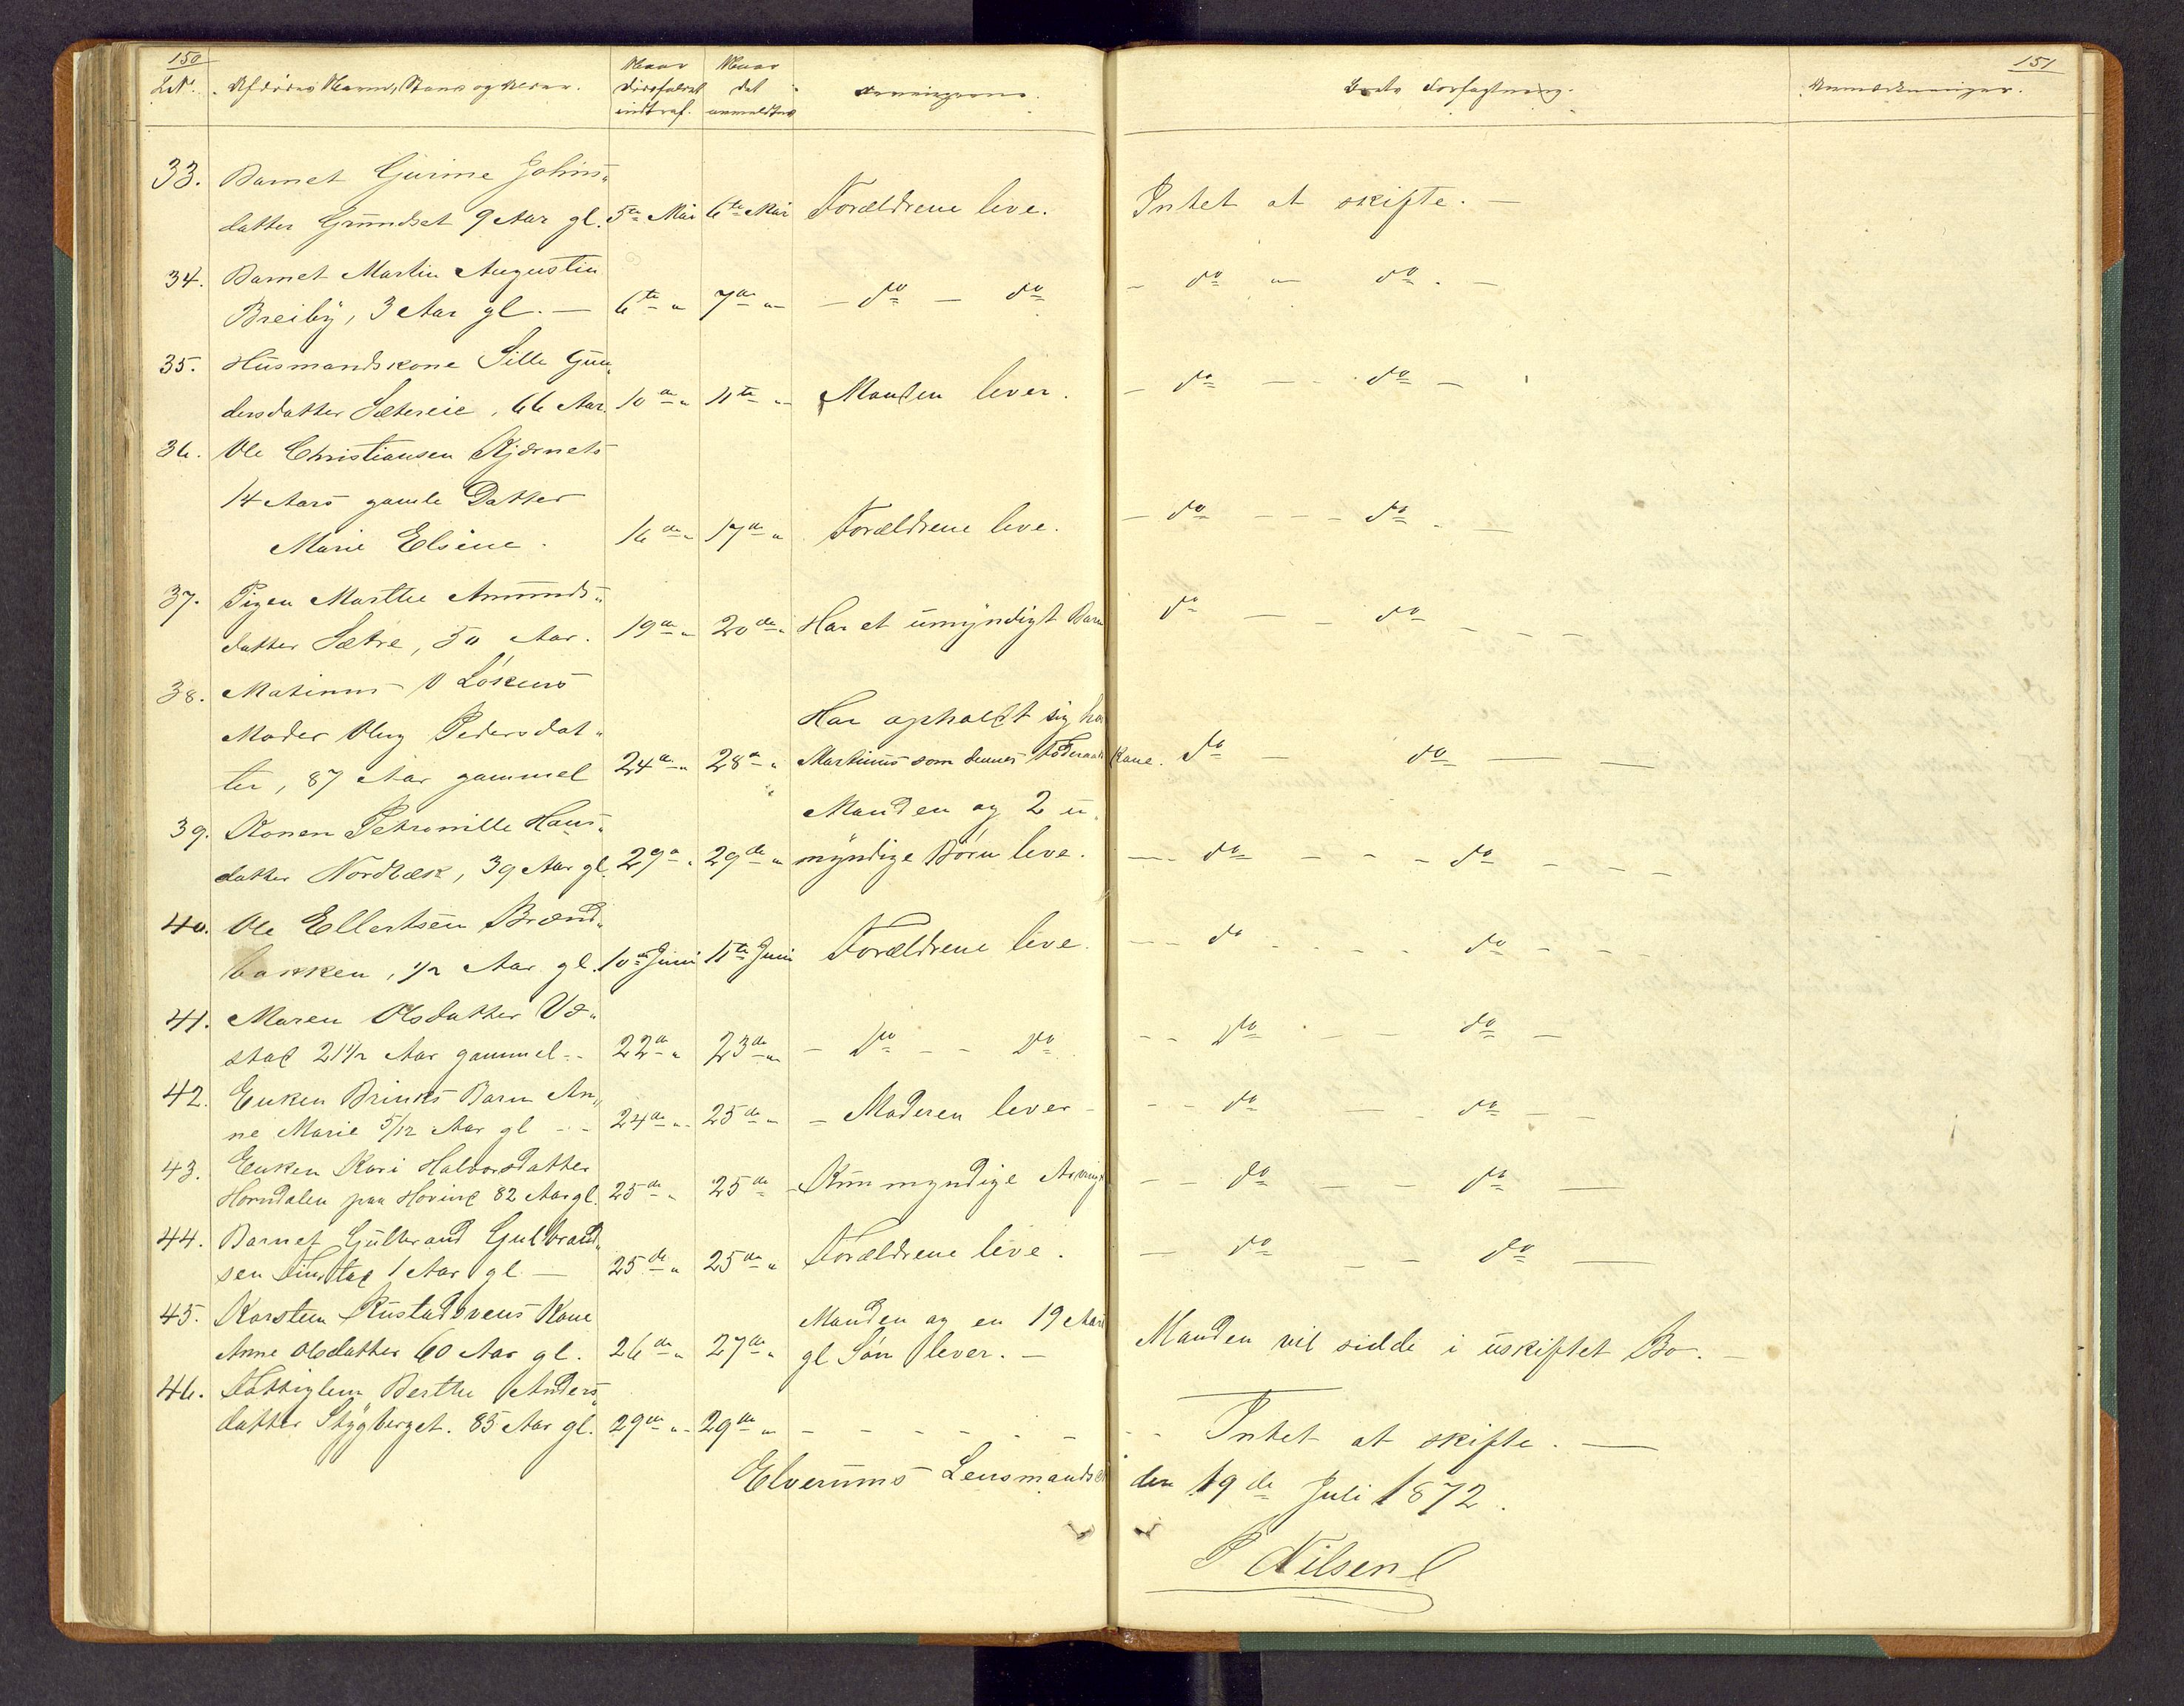 150
151
L.N. Afdødes Navn, Stand og Alder. Naar Dødsfaldet indtraf. Naar det anmeldtes Arvingerne. Boets Forfatning. Anmærkninger.
33. Barnet Gurine Johns-
datter Grundset 9 Aar gl. 5te Mai 6te Mai Forældrene leve. Intet at skifte. —
34. Barnet Martin Augustin
Breiby, 3 Aar gl. — 6te " 7de " — do — do — do — do —
35. Husmandskone Sille Gun-
dersdatter Sætereie, 66 Aar. 10de " 11te " Manden lever. — do — do —
36. Ole Christiansen Kjernets
14 Aars gamle Datter
Marie Elsine. 16de " 17de " Forældrene leve. — do — do —
37. Pigen Marthe Amunds-
datter Sætre, 50 Aar. 19de " 20de " Har et umyndigt Barn do — do —
38. Matinus O Løkens
Moder Oleug Pedersdat-
ter, 87 Aar gammel 24de " 28de " Har opholdt sig hos
Martinus som dennes Føderaads Kone. do — do —
39. Konen Petronille Hans-
datter Nordbæk, 39 Aar gl. 29de " 29de " Manden og 2 u-
myndige Børn leve. — do — do —
40. Ole Ellertsen Brænd-
bakken, 1/2 Aar gl. 10de Juni 11te Juni Forældrene leve. — do — do —
41. Maren Olsdatter
stad 21 1/2 Aar gammel — 22de " 23de " — do — do — do — do —
42. Enken Brinks Barn An-
ne Marie 5/12 Aar gl — 24de " 25de " — Moderen lever — do — do —
43. Enken Kari Halvorsdatter
Horndalen paa Hovind 82 Aar gl. 25de " 25de Kun myndige Arving — do — do —
44. Barnet Gulbrand Gulbrand-
sen 1 Aar gl — 25de " 25de " Forældrene leve. — do — do —
45. Karsten Rustadsveens Kone
Anne Olsdatter 60 Aar gl. 26de " 27de " Manden og en 19 Aars
gl Søn lever. — Manden vil sidde i uskiftet Bo. —
46. Fattiglem Berthe Anders-
datter Stygberget. 85 Aar gl. 29de " 29de " — — — Intet at skifte. —
Elverums Lensmands den 19de Juli 1872.
P Nilsen